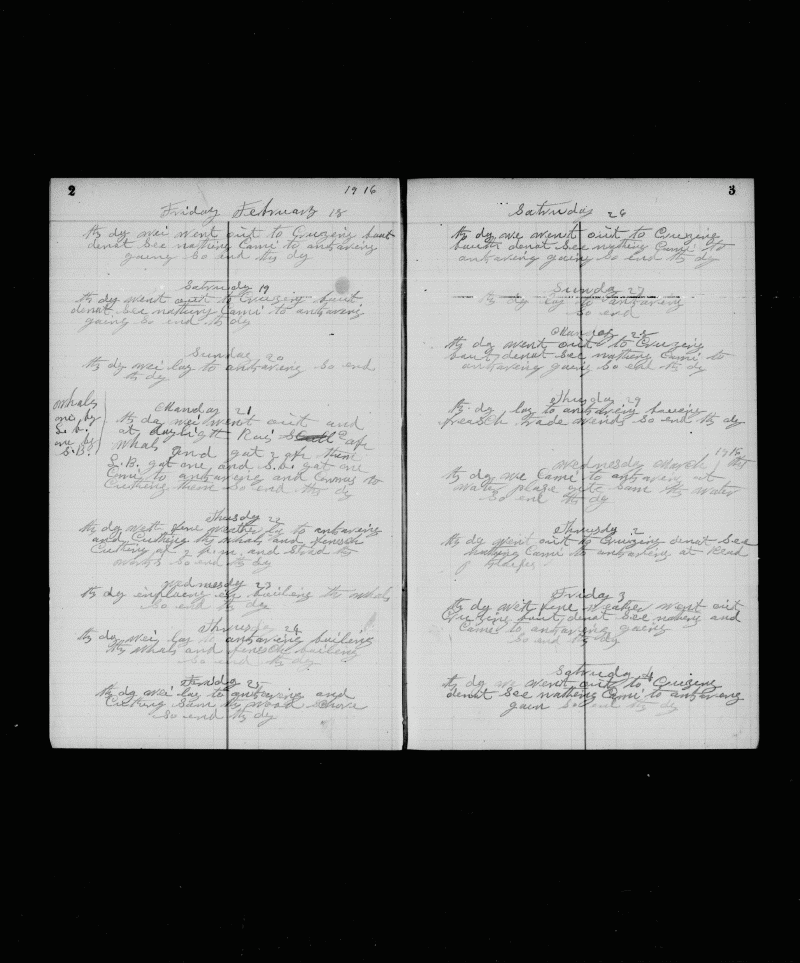 2
1916
Friday February 18
th dy wei went out to Cruzeing baut
denot See nathing Cami to ankareing
gaing So end th dy
Saturday 19
th dy went out to Cruzing baut
denot See nathing Cami to ankareing
gaing So end th dy
Sunday 20
th dy wei lay to ankareing So end
th dy
Whals
one by
L.B.
one by
S.B.
Manday 21
th dy wei went out and
at daylight Rais
whals and gat 2 of them
L.B. gat one and S.B. gat one
Cami to ankareing and
Cutting them So end th dy
Thusday 22
th dy with fine weather lay to ankareing
and Cutting th whals and finesh
Cutting at 2 P.m. and Stood th
So end th dy
Wednesday 23
th dy in baileing th whals
So end th dy
Thursday 24
th dy wei lay to ankareing baileing
th whals and finesh baileing
So end th dy
25
th dy wei lay to ankareing and
Cutting Sam wood
So end th dy
3
Saturday 26
th dy we went out to Cruzing
baut denot See nathing Cami to
ankareing gaing So end th dy
Sunday 27
th dy lay to ankareing
So end
Manday 28
th dy went out to Cruzing
baut denot See nathing Cami to
ankareing gaing So end th dy
Thusday 29
th dy lay to ankareing
freash trade winds So end th dy
1916
Wednesday March 1
th dy we Cami to ankareing at
water plase Sam th water
So end th dy
Thursday 2
th dy went out to Cruzing denat See
nathing Cami to ankareing at
Friday 3
th dy with fine weather went out
Cruzing baut denat See nathing and
Cami to ankareing gaing
So end th dy
Saturday 4
th dy we went out to Cruzing
denat See nathing Cami to ankareing
gain So end th dy